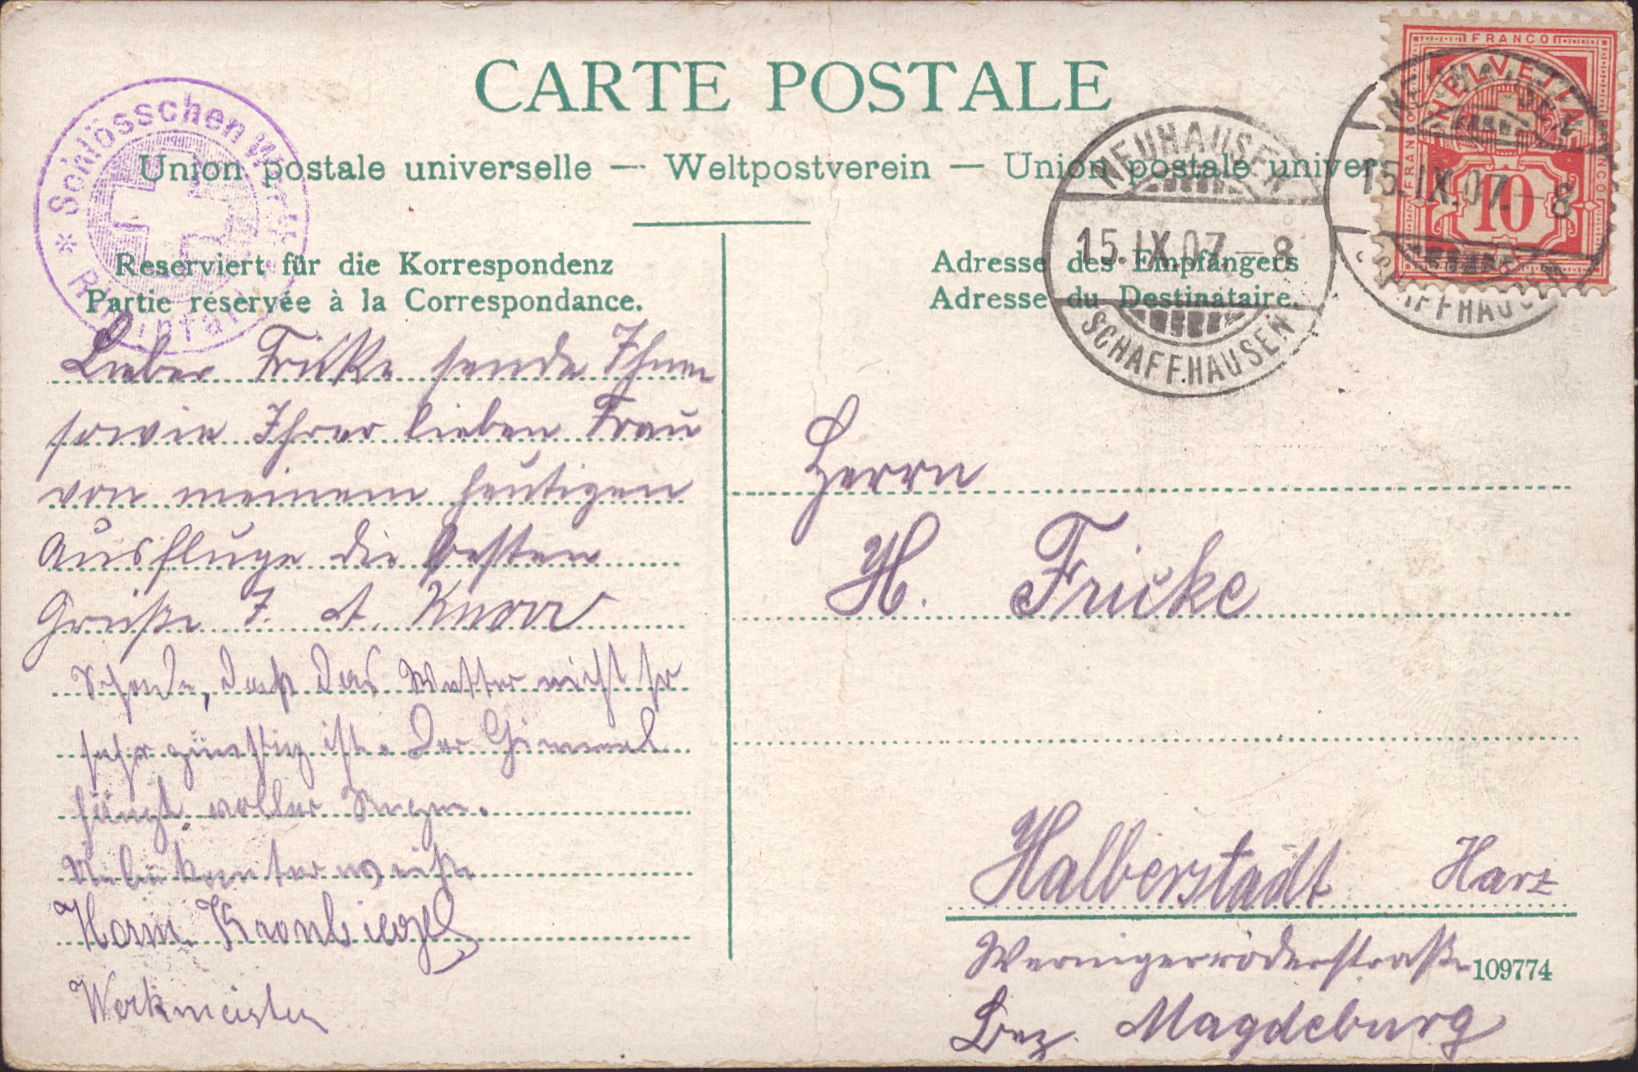 CARTE POSTALE
Union postale universelle — Weltpostverein — Union postale univer
Schlösschen Wörth
* Rheinfall *
Reserviert für die Korrespondenz
Partie réservée à la Correspondance.
Adresse des Empfängers
Adresse du Destinataire.
NEUHAUSEN
15.IX.07.–8
SCHAFFHAUSEN
FRANCO
HELVETIA
FRANCO
FRANCO
10
NEUHAUSEN
15.IX.07.–8
SCHAFFHAUSEN
Lieber Fricke sende Ihnen
sowie Ihrer lieben Frau
von meinem heutigen
Ausfluge die besten
Grüße F. A. Knorr
Schade, daß das Wetter nicht so
sehr günstig ist. Der Himmel
hängt voller Regen.
Unbekannter weise
Herm. Kronbiegel
Werkmeister
Herrn
H. Fricke
Halberstadt Harz
Wernigeröderstraße
109774
Bez. Magdeburg